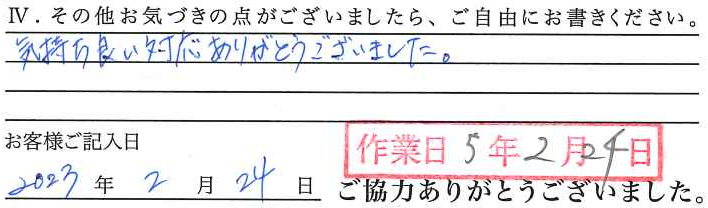 Ⅳ．その他お気づきの点がございましたら、ご自由にお書きください。
気持ち良い対応ありがとうございました。
お客様ご記入日
作業日 5年2月24日
2023年 2月 24日
ご協力ありがとうございました。